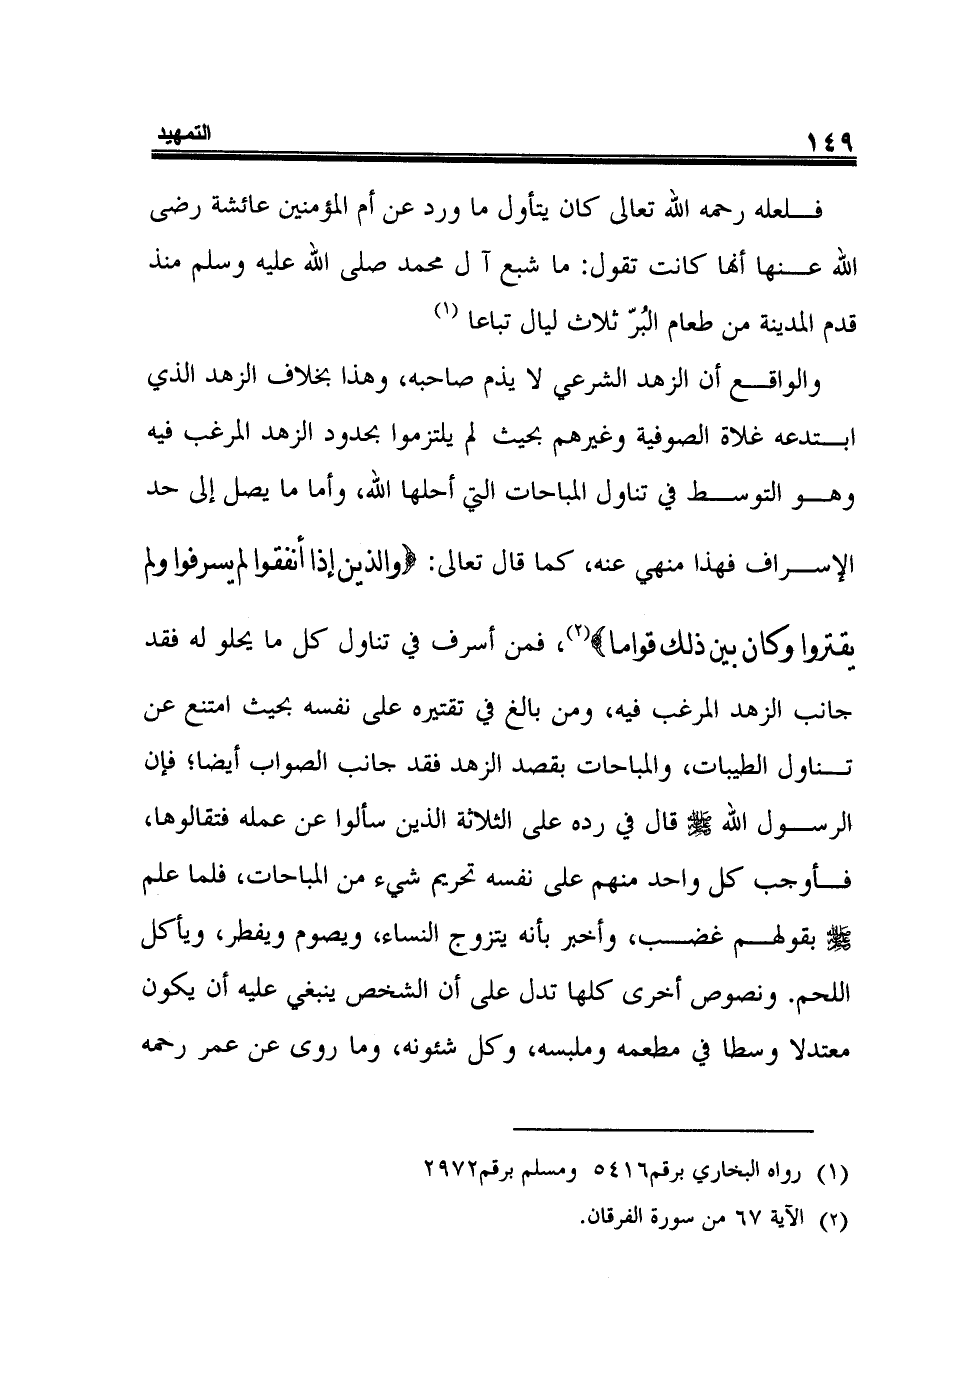 ١٤٩ التمهيد
فلعله رحمه الله تعالى كان يتأول ما ورد عن أم المؤمنين عائشة رضى
الله عنها أنها كانت تقول: ما شبع آ ل محمد صلى الله عليه وسلم منذ
قدم المدينة من طعام البُرّ ثلاث ليال تباعا (١)
والواقع أن الزهد الشرعي لا يذم صاحبه، وهذا بخلاف الزهد الذي
ابتدعه غلاة الصوفية وغيرهم بحيث لم يلتزموا بحدود الزهد المرغب فيه
وهو التوسط في تناول المباحات التي أحلها الله، وأما ما يصل إلى حد
الإسراف فهذا منهي عنه، كما قال تعالى: ﴿والذين إذا أنفقوا لم يسرفوا ولم
يقتروا وكان بين ذلك قواما﴾(٢)، فمن أسرف في تناول كل ما يحلو له فقد
جانب الزهد المرغب فيه، ومن بالغ في تقتيره على نفسه بحيث امتنع عن
تناول الطيبات، والمباحات بقصد الزهد فقد جانب الصواب أيضا؛ فإن
الرسول الله ﷺ قال في رده على الثلاثة الذين سألوا عن عمله فتقالوها،
فأوجب كل واحد منهم على نفسه تحريم شيء من المباحات، فلما علم
ﷺ بقولهم غضب، وأخبر بأنه يتزوج النساء، ويصوم ويفطر، ويأكل
اللحم. ونصوص أخرى كلها تدل على أن الشخص ينبغي عليه أن يكون
معتدلا وسطا في مطعمه وملبسه، وكل شئونه، وما روى عن عمر رحمه
(١) رواه البخاري برقم٥٤١٦ ومسلم برقم٢٩٧٢
(٢) الآية ٦٧ من سورة الفرقان.